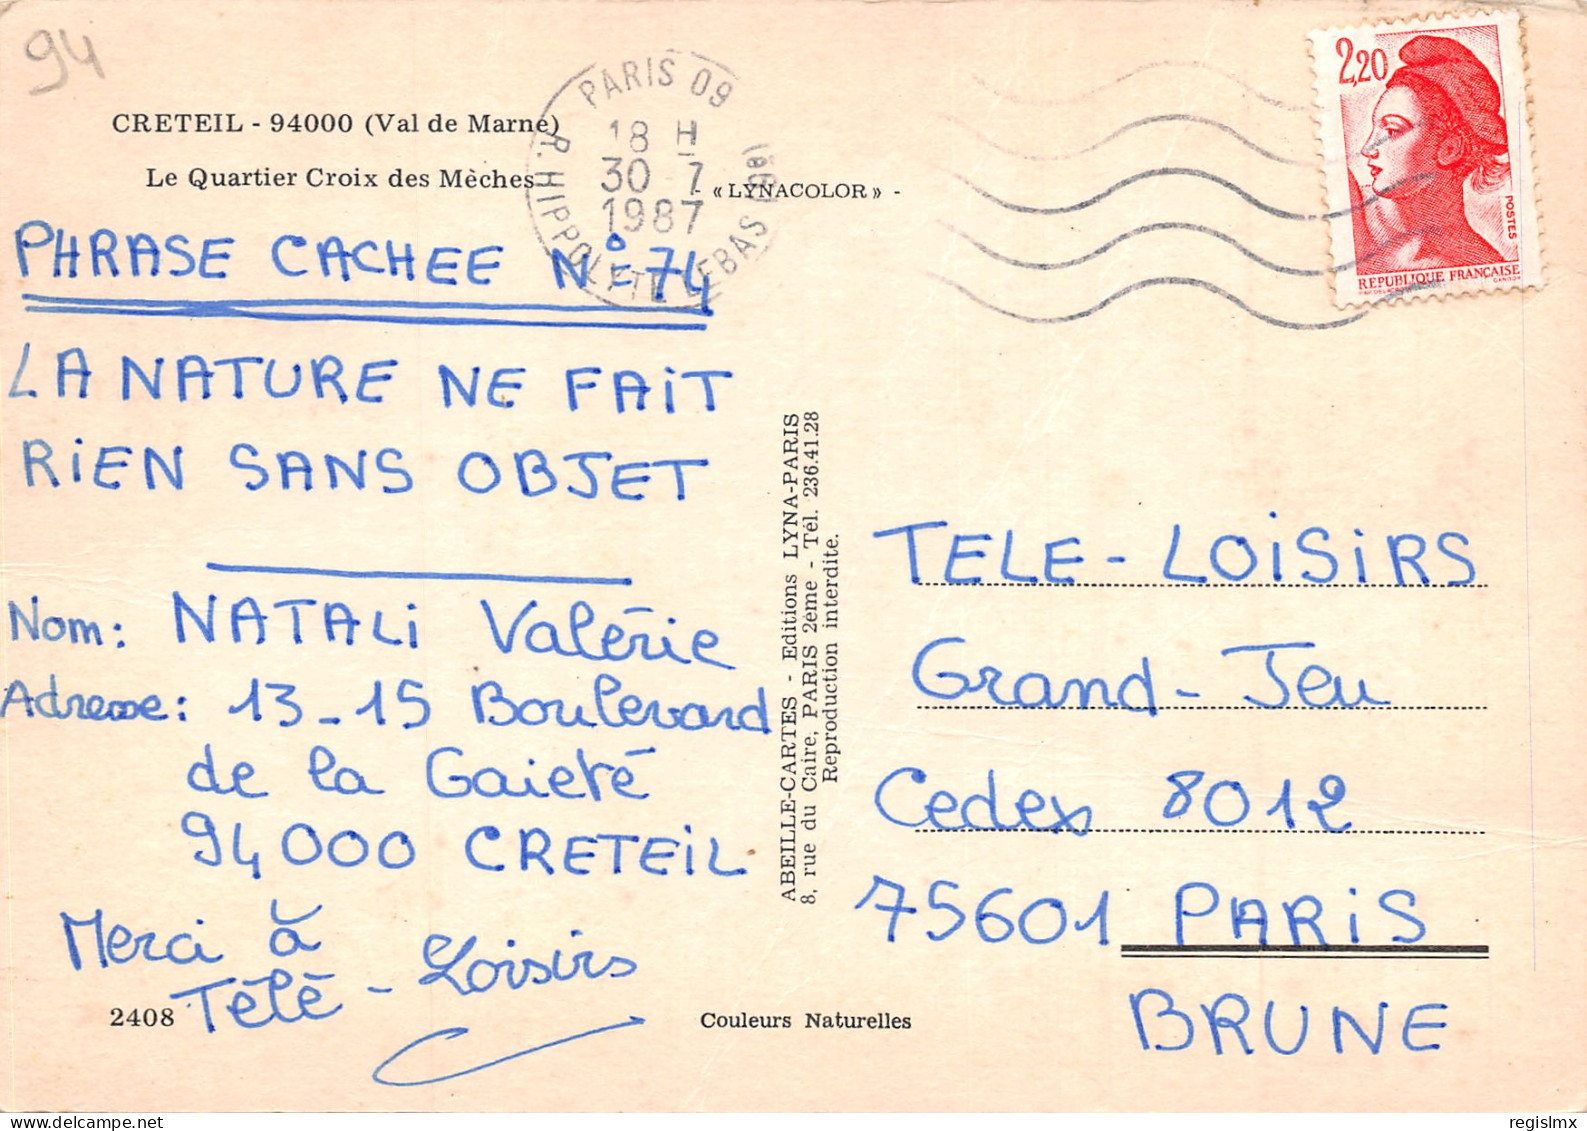 94
CRETEIL - 94000 (Val de Marne)
Le Quartier Croix des Mèches
- « LYNACOLOR » -
PARIS 09
R. HIPPOLYTE LEBAS (9e)
18 H
30 - 7
1987
2,20
POSTES
REPUBLIQUE FRANÇAISE
GANDON
PHRASE CACHEE N° 74
LA NATURE NE FAiT
RiEN SANS OBJET
Nom: NATALi Valérie
Adresse: 13-15 Boulevard
de la Gaieté
94000 CRETEIL
Merci à
Télé-Loisirs
2408
Couleurs Naturelles
ABEILLE-CARTES - Editions LYNA-PARIS
8, rue du Caire, PARIS 2ème - Tél. 236.41.28
Reproduction interdite.
TELE-LOiSiRS
Grand-Jeu
Cedex 8012
75601 PARiS
BRUNE
regislmx